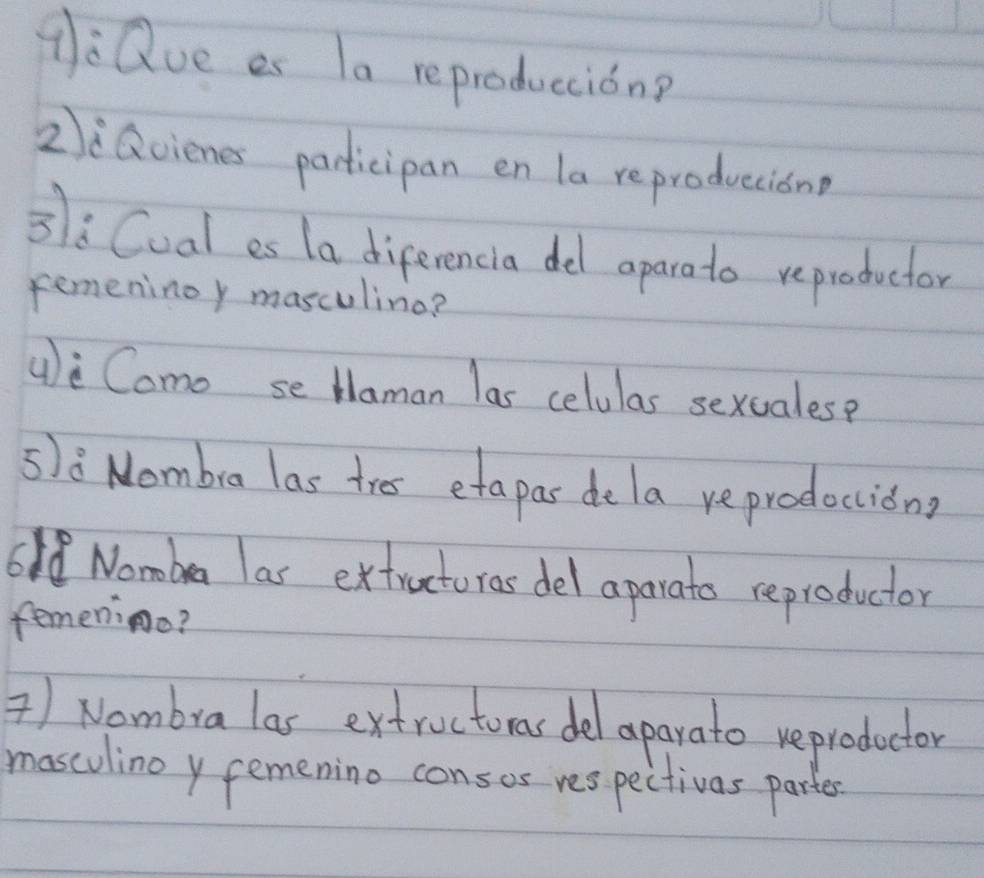 1)¿Que es la reproducción?
2)¿Quienes participan en la reproducción?
3)¿Cual es la diferencia del aparato reproductor
femenino y masculino?
4)¿Como se llaman las celulas sexuales?
5)¿Nombra las tres etapas de la reprodocción?
6)¿Nombra las extructuras del aparato reproductor
femenino?
7) Nombra las extructuras del aparato reproductor
masculino y femenino consus respectivas partes.